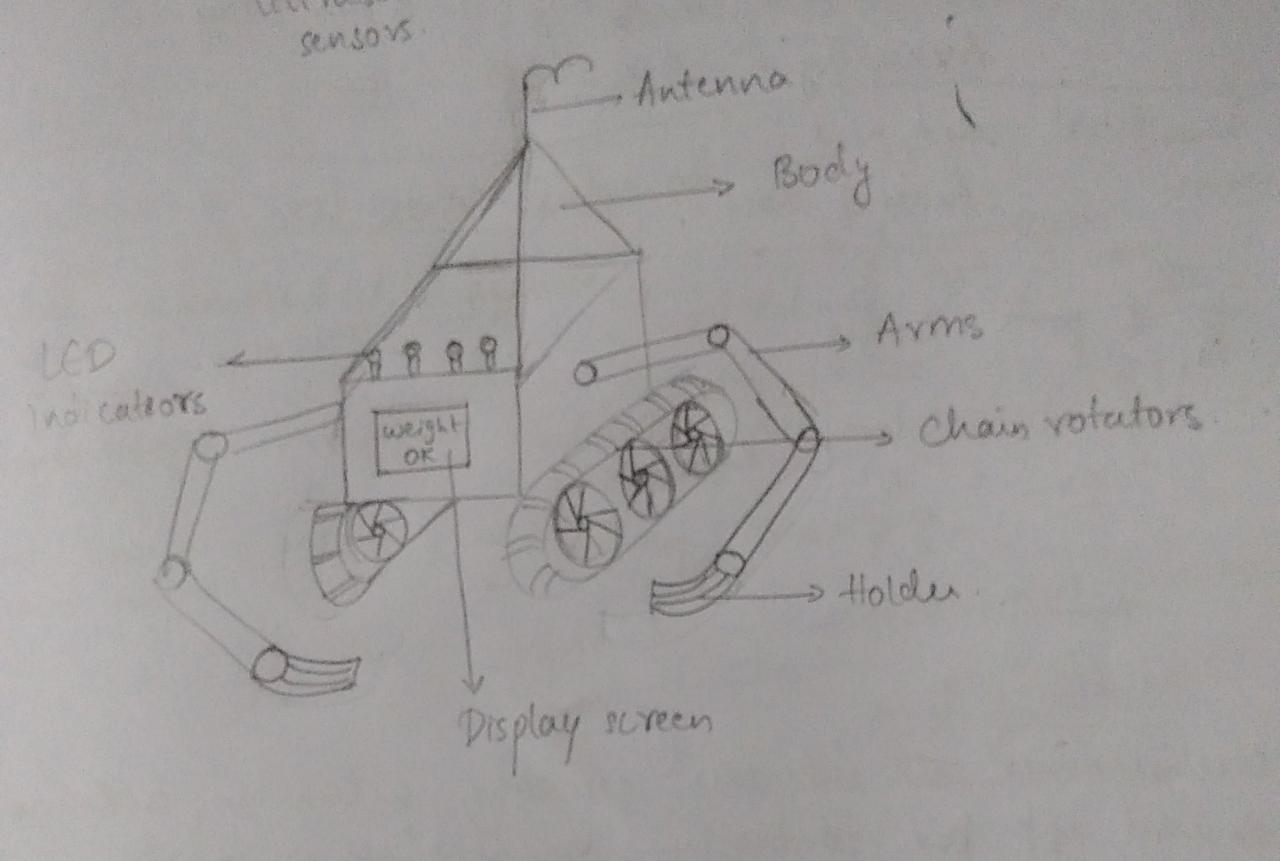 sensors.
Antenna
Body
Arms
LED
indicators
weight
OK
Chain rotators.
Holder.
Display screen